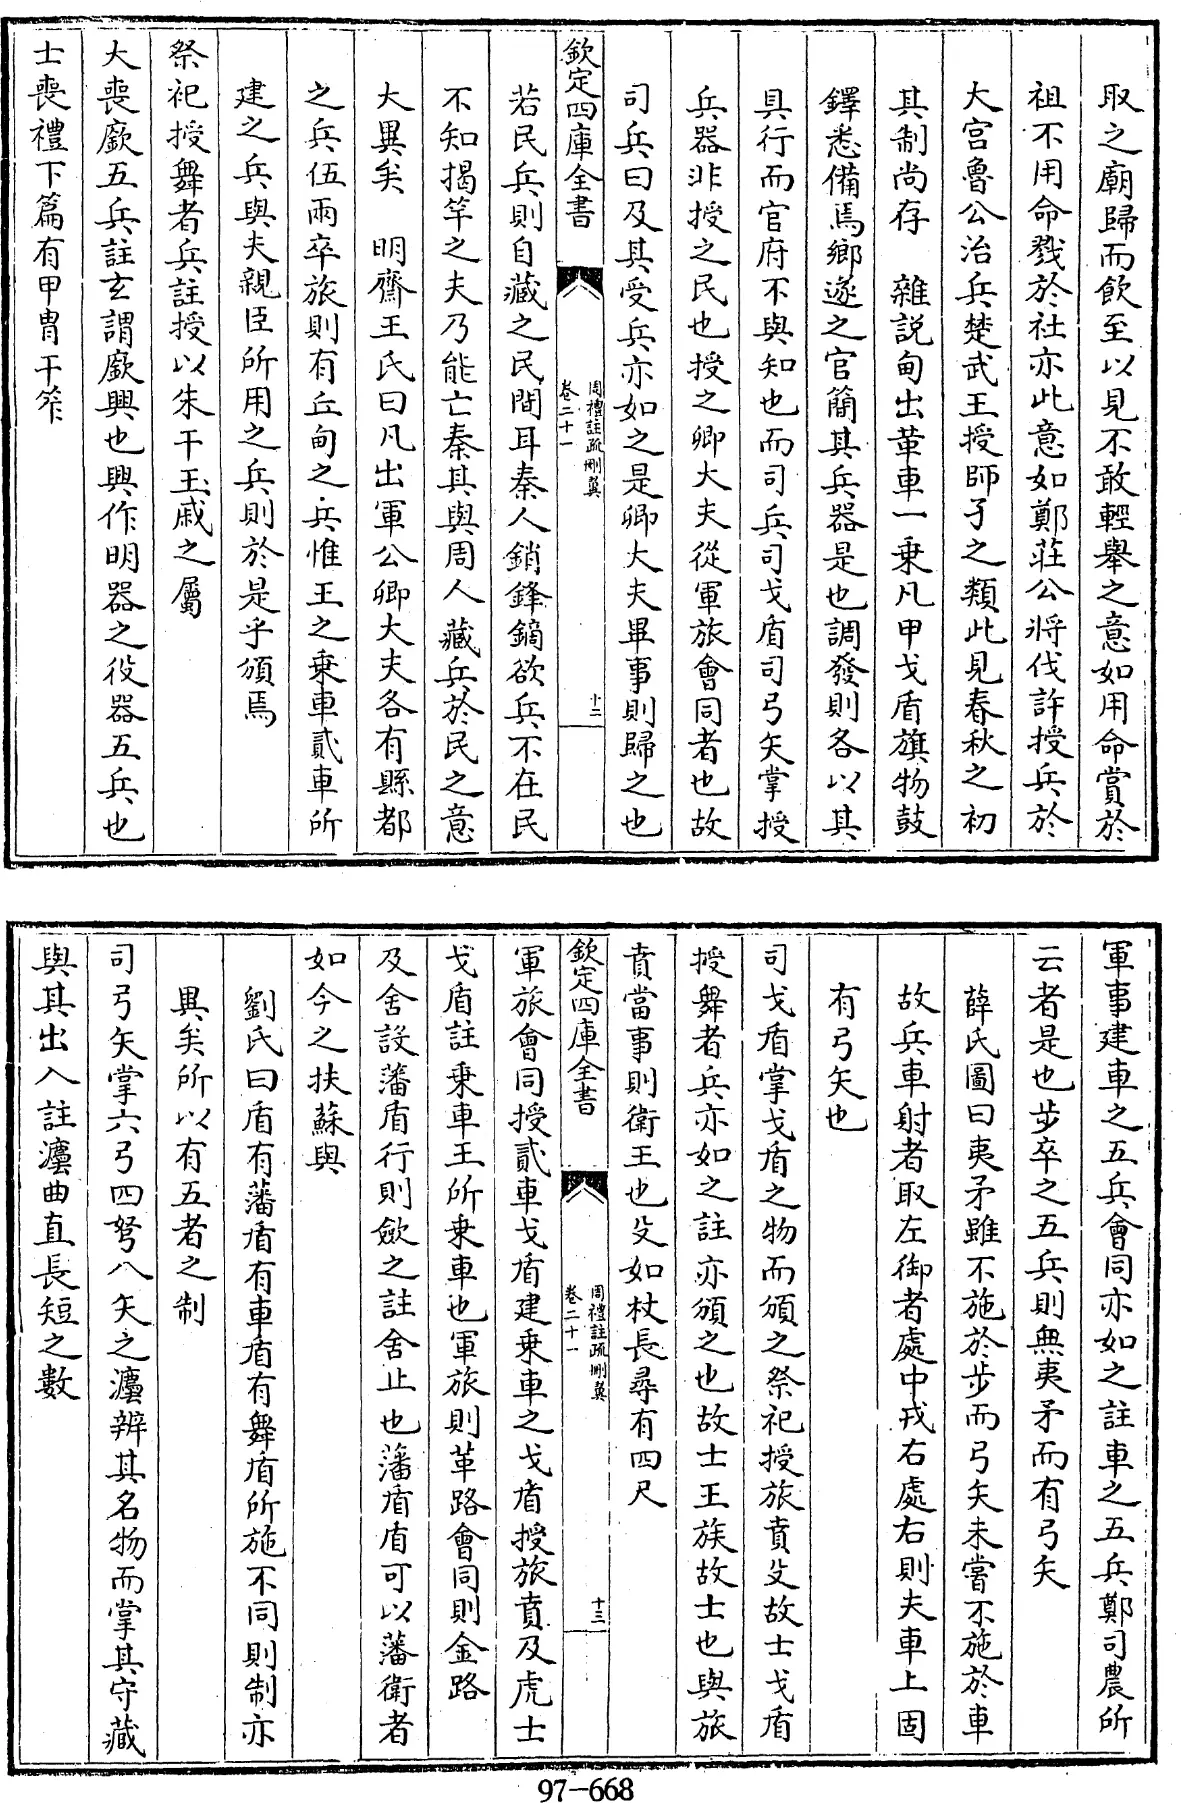 取之廟歸而飲至以見不敢輕舉之意如用命賞於
祖不用命戮於社亦此意如鄭莊公將伐許授兵於
大宫魯公治兵楚武王授師孑之類此見春秋之初
其制尚存　雜説甸出革車一乗凡甲戈盾旗物鼓
鐸悉備焉鄉遂之官簡其兵器是也調發則各以其
具行而官府不與知也而司兵司戈盾司弓矢掌授
兵器非授之民也授之卿大夫從軍旅會同者也故
司兵曰及其受兵亦如之是卿大夫畢事則歸之也
欽定四庫全書
周禮註疏刪翼
卷二十一
十二
若民兵則自藏之民間耳秦人銷鋒鏑欲兵不在民
不知揭竿之夫乃能亡秦其與周人藏兵於民之意
大異矣　明齋王氏曰凡出軍公卿大夫各有縣都
之兵伍兩卒旅則有丘甸之兵惟王之乗車貳車所
建之兵與夫親臣所用之兵則於是乎頒焉
祭祀授舞者兵註授以朱干玉戚之屬
大喪廞五兵註玄謂廞興也興作明器之役器五兵也
士喪禮下篇有甲冑干笮
軍事建車之五兵會同亦如之註車之五兵鄭司農所
云者是也步卒之五兵則無夷矛而有弓矢
薛氏圖曰夷矛雖不施於步而弓矢未嘗不施於車
故兵車射者取左御者處中戎右處右則夫車上固
有弓矢也
司戈盾掌戈盾之物而頒之祭祀授旅賁殳故士戈盾
授舞者兵亦如之註亦頒之也故士王族故士也與旅
賁當事則衛王也殳如杖長尋有四尺
欽定四庫全書
周禮註疏刪翼
卷二十一
十三
軍旅會同授貳車戈盾建乗車之戈盾授旅賁及虎士
戈盾註乗車王所乗車也軍旅則革路會同則金路
及舍設藩盾行則斂之註舍止也藩盾盾可以藩衛者
如今之扶蘇與
劉氏曰盾有藩盾有車盾有舞盾所施不同則制亦
異矣所以有五者之制
司弓矢掌六弓四弩八矢之灋辨其名物而掌其守藏
與其出入註灋曲直長短之數
97-668